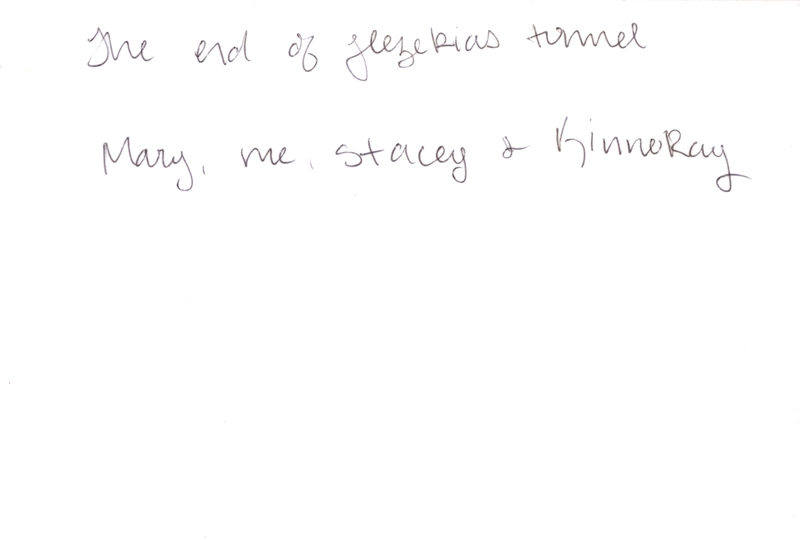 The end of Hezekias tunnel
Mary, me, Stacey & KinneRay